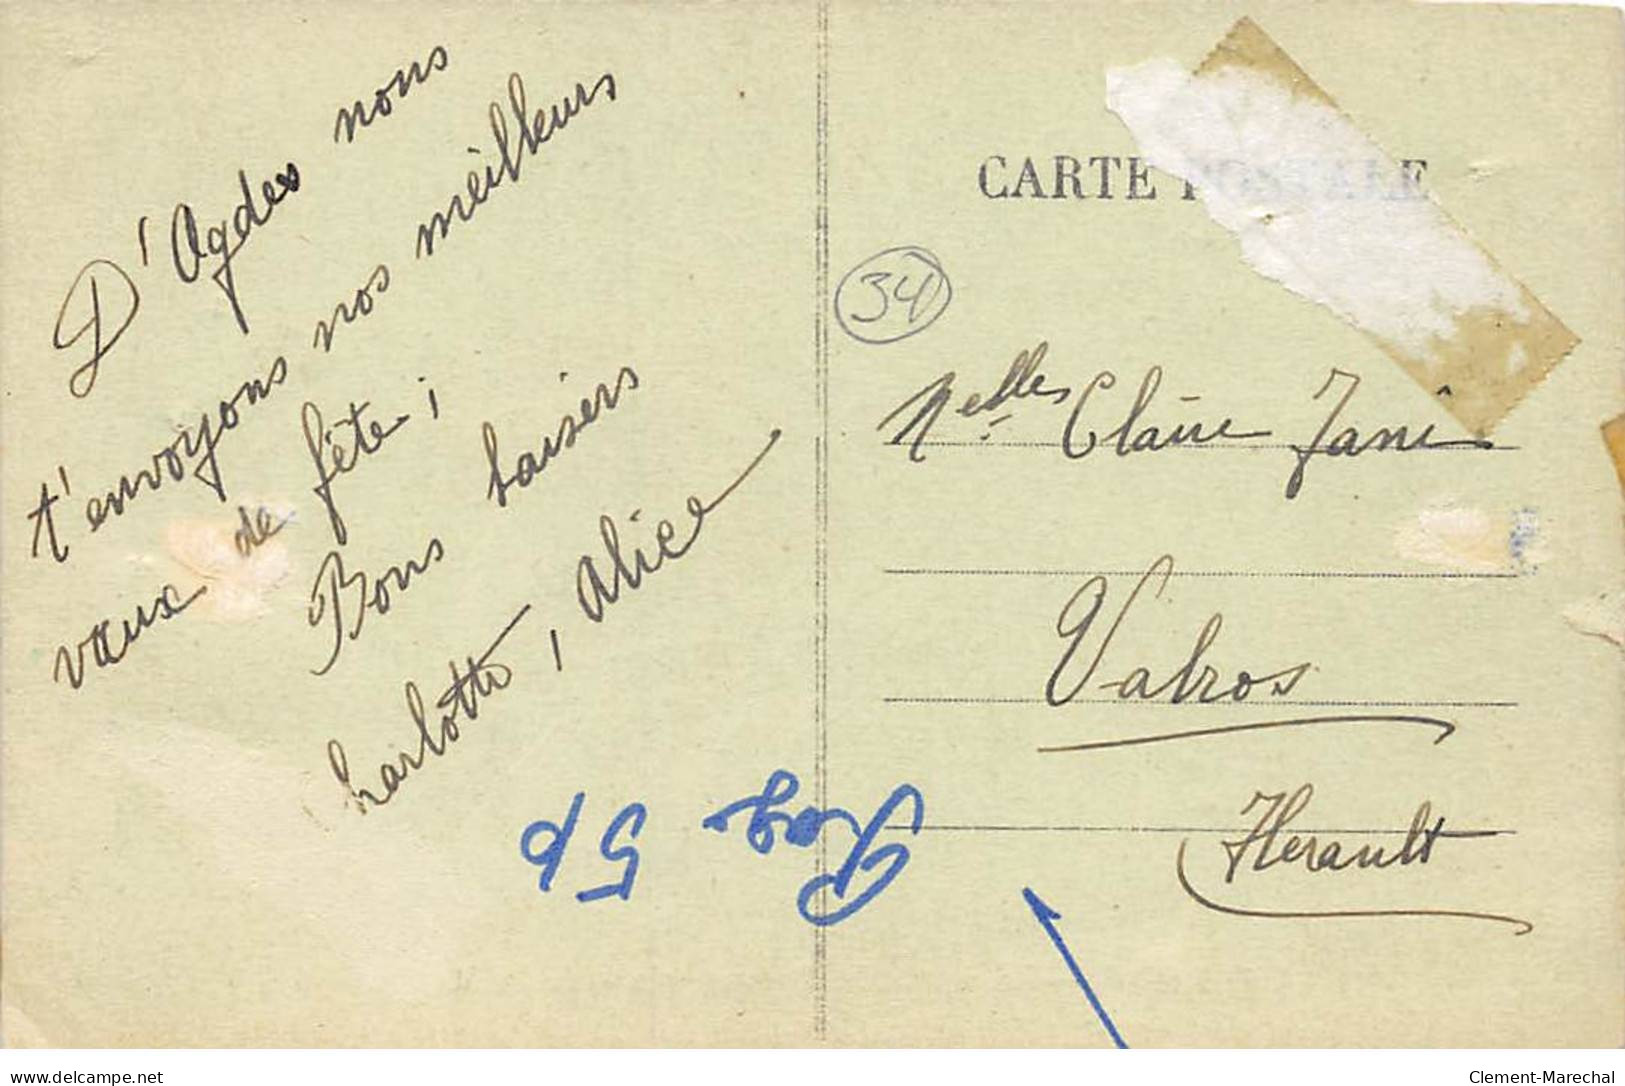 D'Agde nous
t'envoyons nos meilleurs
vœux de fête ;
Bons baisers
harlotte, Alice
CARTE POSTALE
34
Melle Claire Jani
Valros
Herault
5
delcampe.net
Clement-Marechal